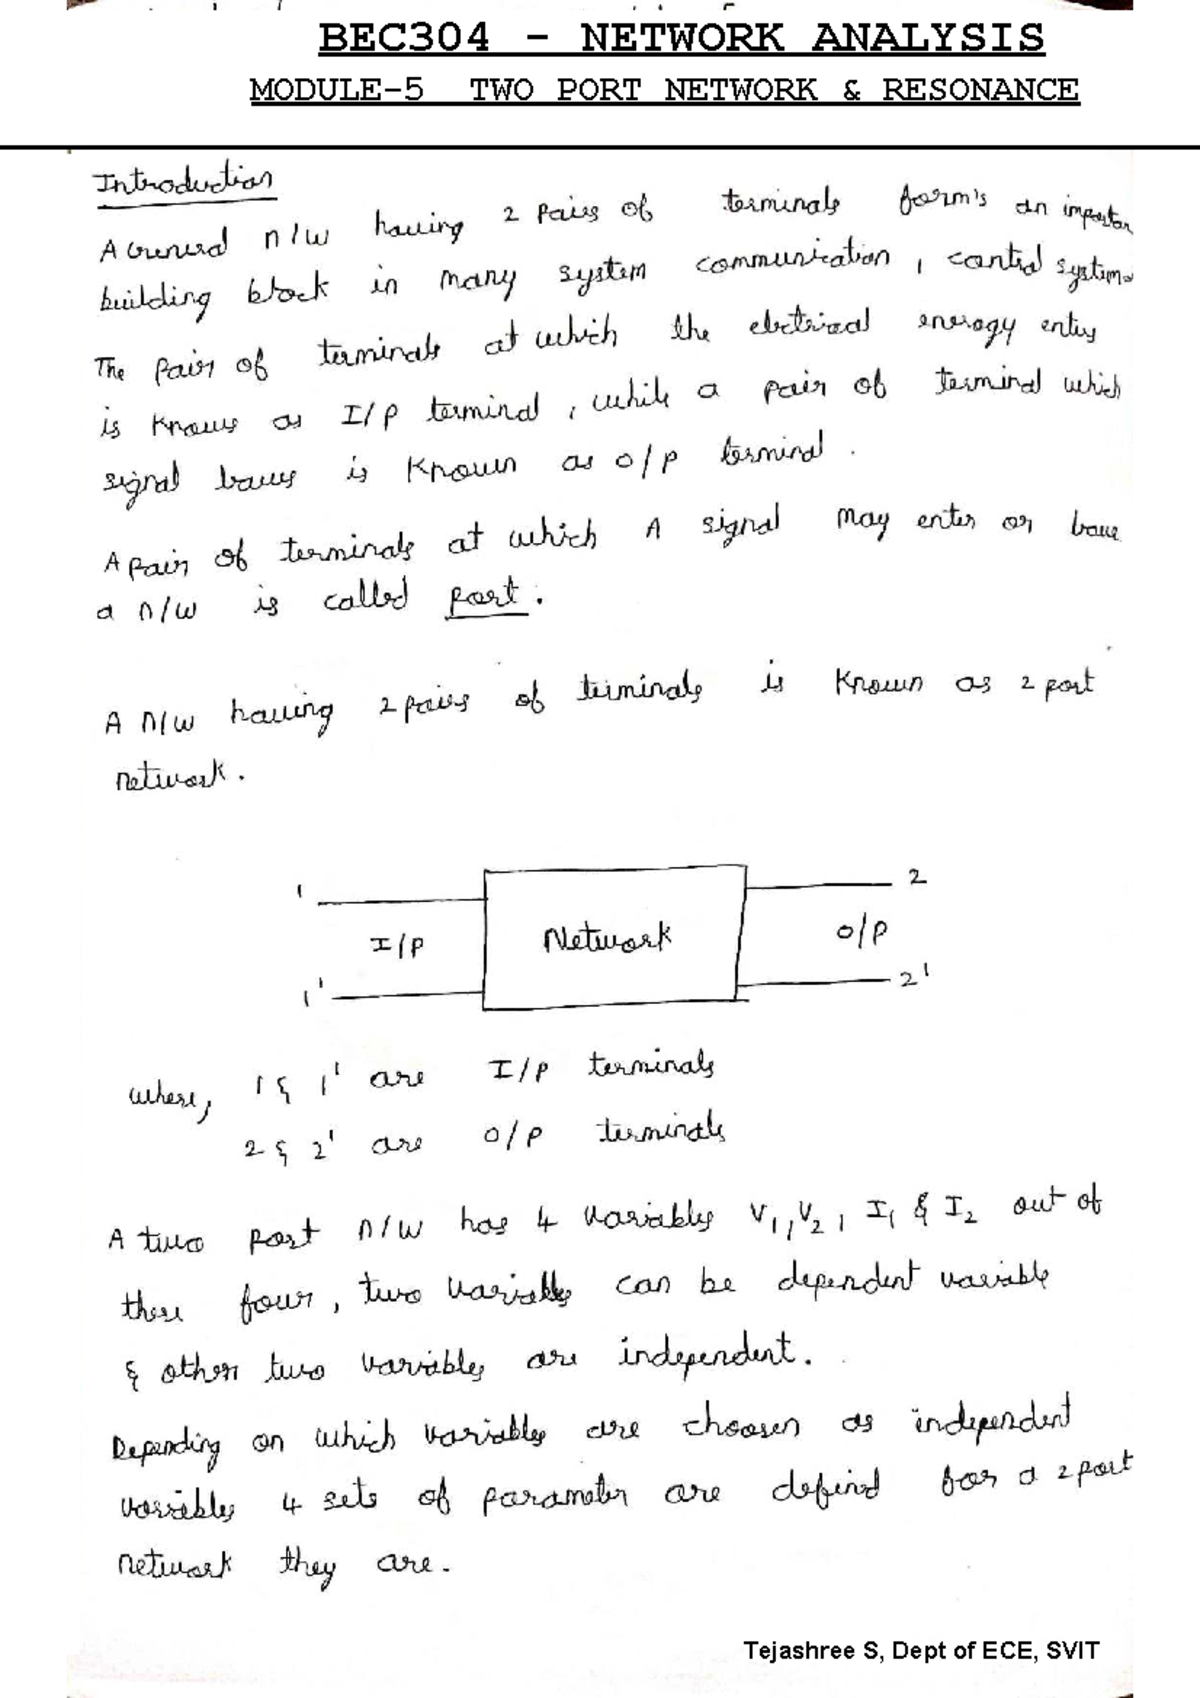 BEC304 - NETWORK ANALYSIS
MODULE-5 TWO PORT NETWORK & RESONANCE
Introduction
A General n/w having 2 pairs of terminals form's an importan
building block in many system communication, control systems
The pair of terminals at which the electrical energy enters
is known as I/P terminal, while a pair of terminal which
signal leaves is known as o/p terminal.
A pair of terminals at which A signal may enter or leave
a n/w is called port.
A n/w having 2 pairs of terminals is known as 2 port
network.
1 2
I/P Network O/P
1' 2'
where, 1 & 1' are I/P terminals
2 & 2' are O/P terminals
A two port n/w has 4 variables V1, V2, I1 & I2 out of
these four, two variables can be dependent variable
& other two variables are independent.
Depending on which variables are choosen as independent
variables 4 sets of parameter are defined for a 2 port
network they are.
Tejashree S, Dept of ECE, SVIT